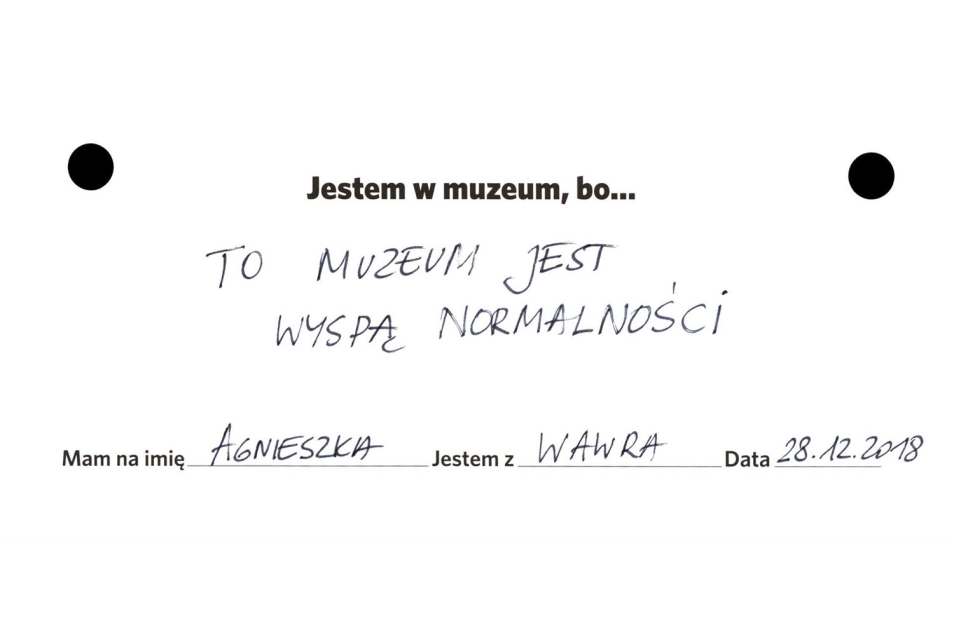 Jestem w muzeum, bo...
TO MUZEUM JEST
WYSPĄ NORMALNOŚCI
Mam na imię AGNIESZKA Jestem z WAWRA Data 28.12.2018